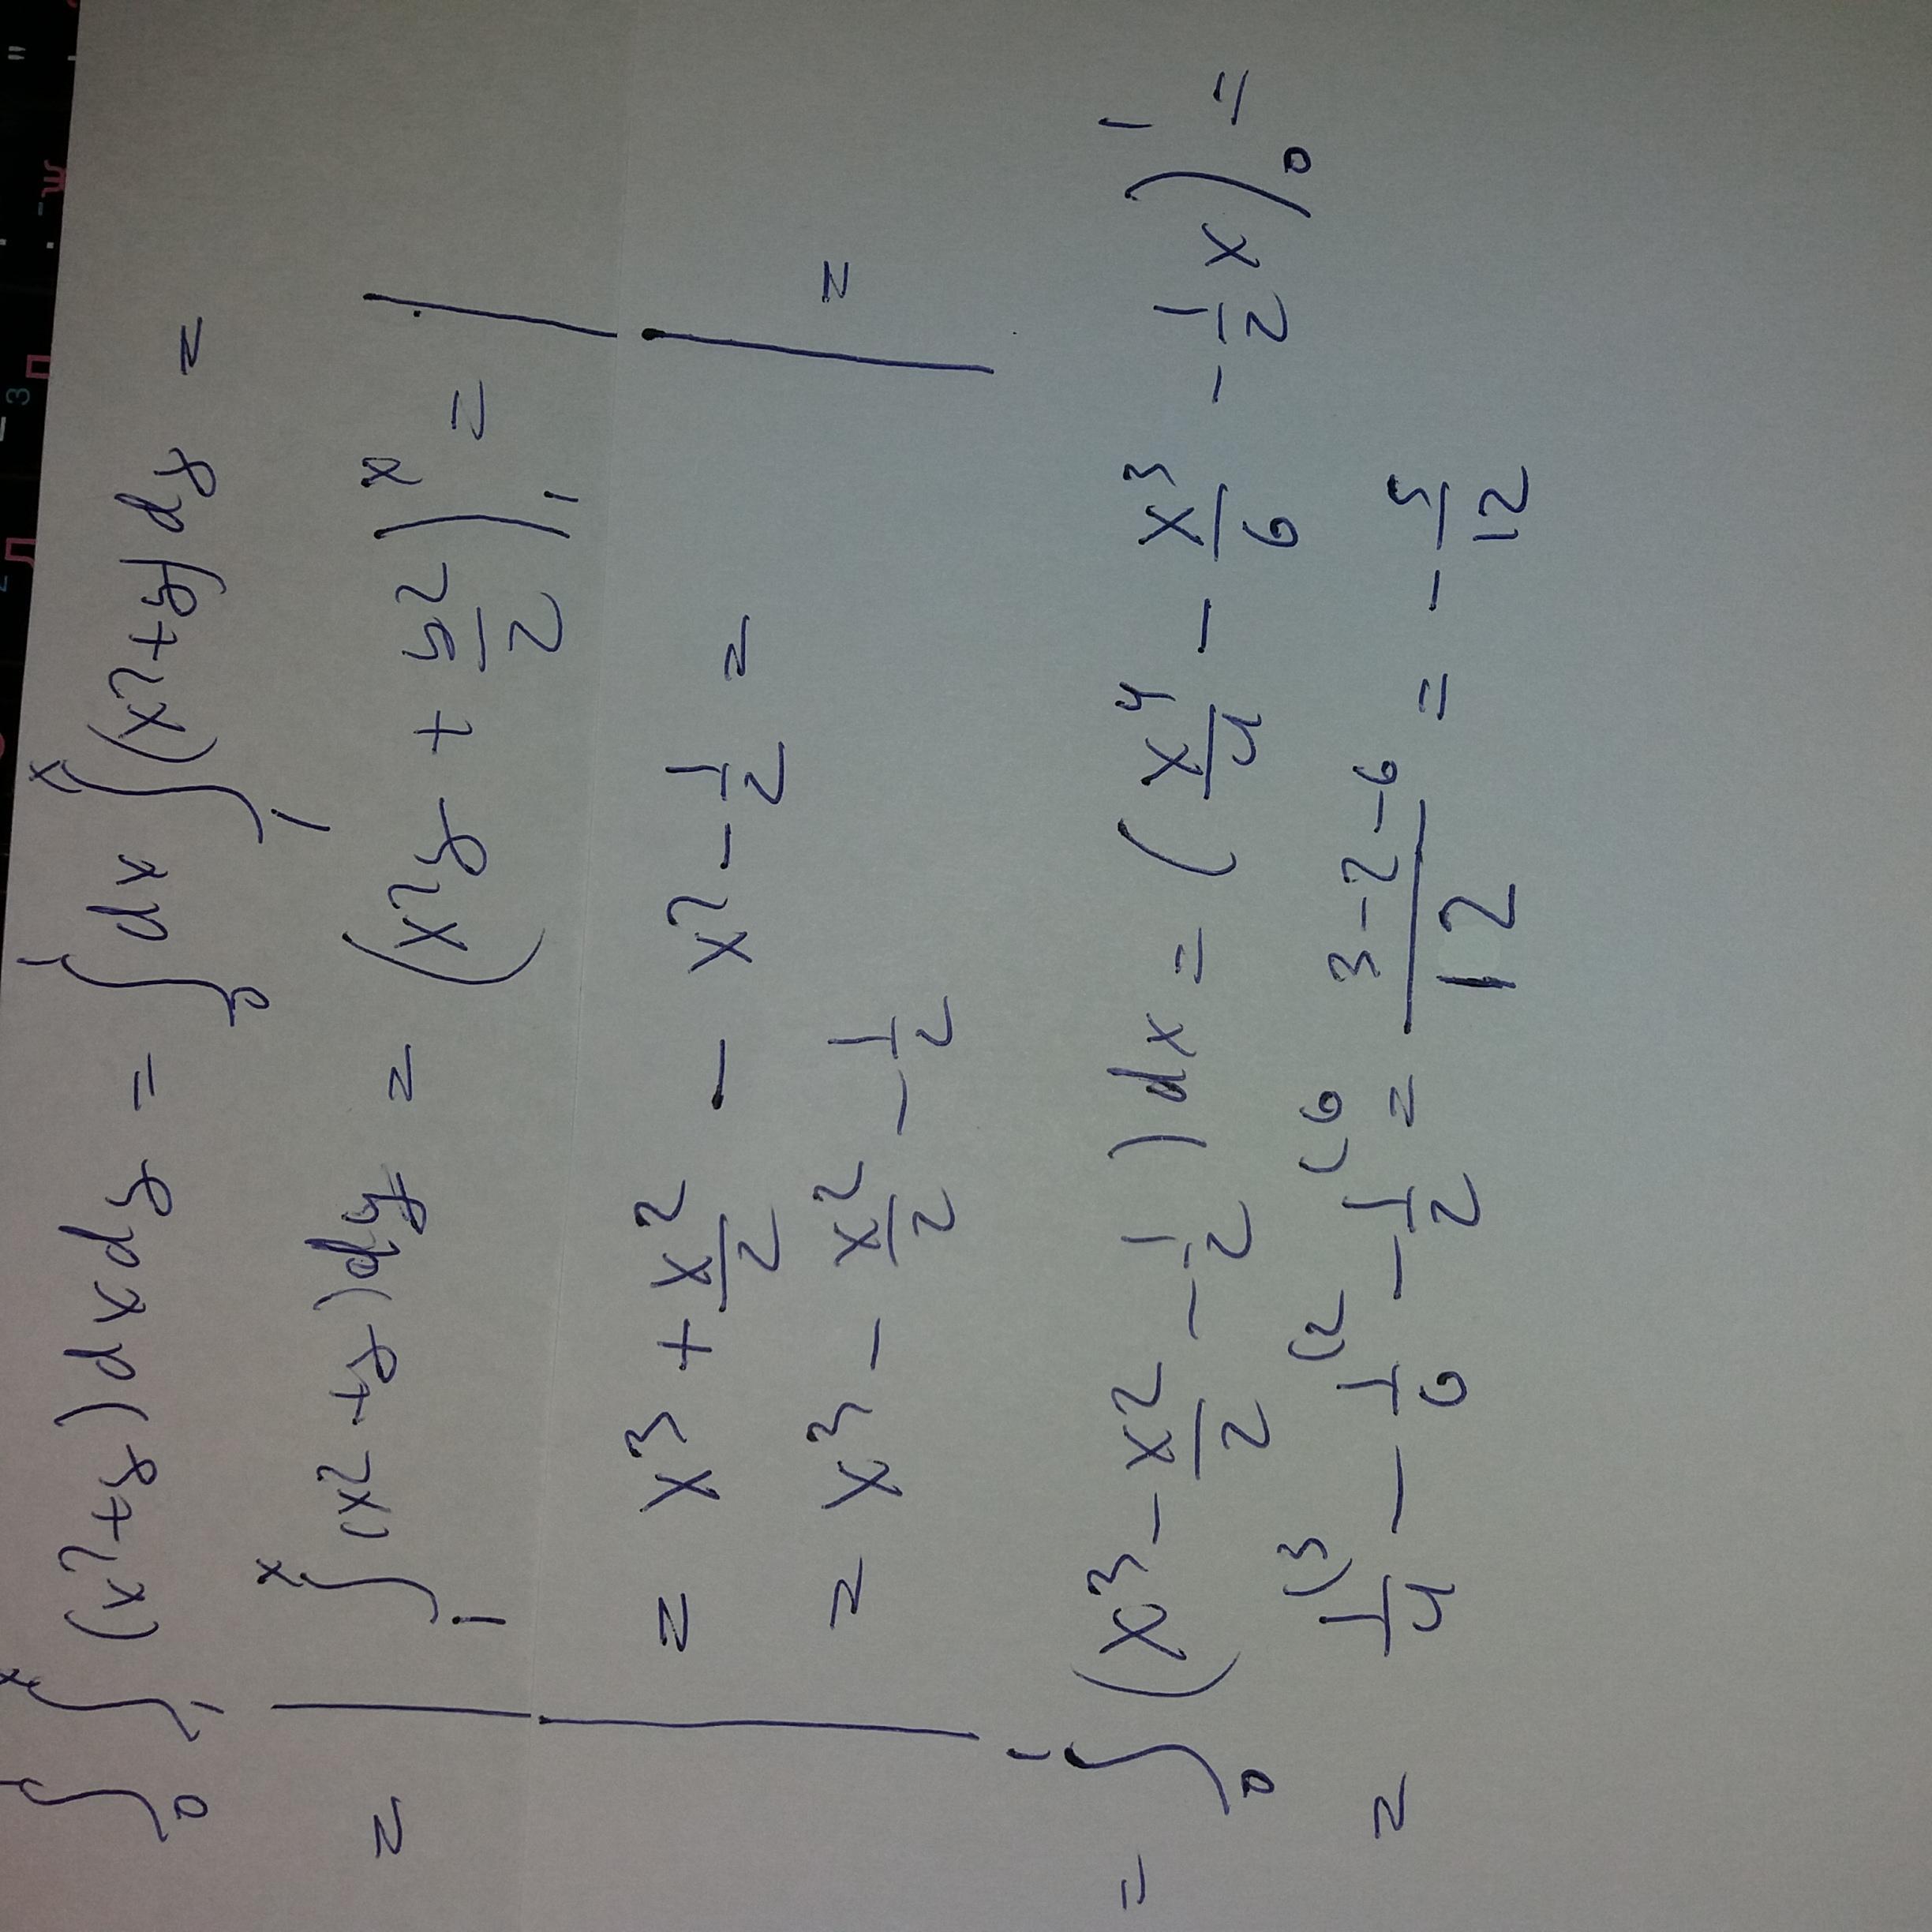 ∫₀¹ ∫₁ˣ (x²+y) dx dy = ∫₀¹ dx ∫₁ˣ (x²+y) dy =
= | ∫₁ˣ (x²+y) dy = (x²y + y²/2) |₁ˣ = |
| = x³ + x²/2 - x² - 1/2 =
= x³ - x²/2 - 1/2 | =
= ∫₀¹ (x³ - x²/2 - 1/2) dx = (x⁴/4 - x³/6 - 1/2 x) |₀¹ =
= 1/4 (3 - 1/6 (2 - 1/2 (6 = (3-2-6)/12 = - 5/12